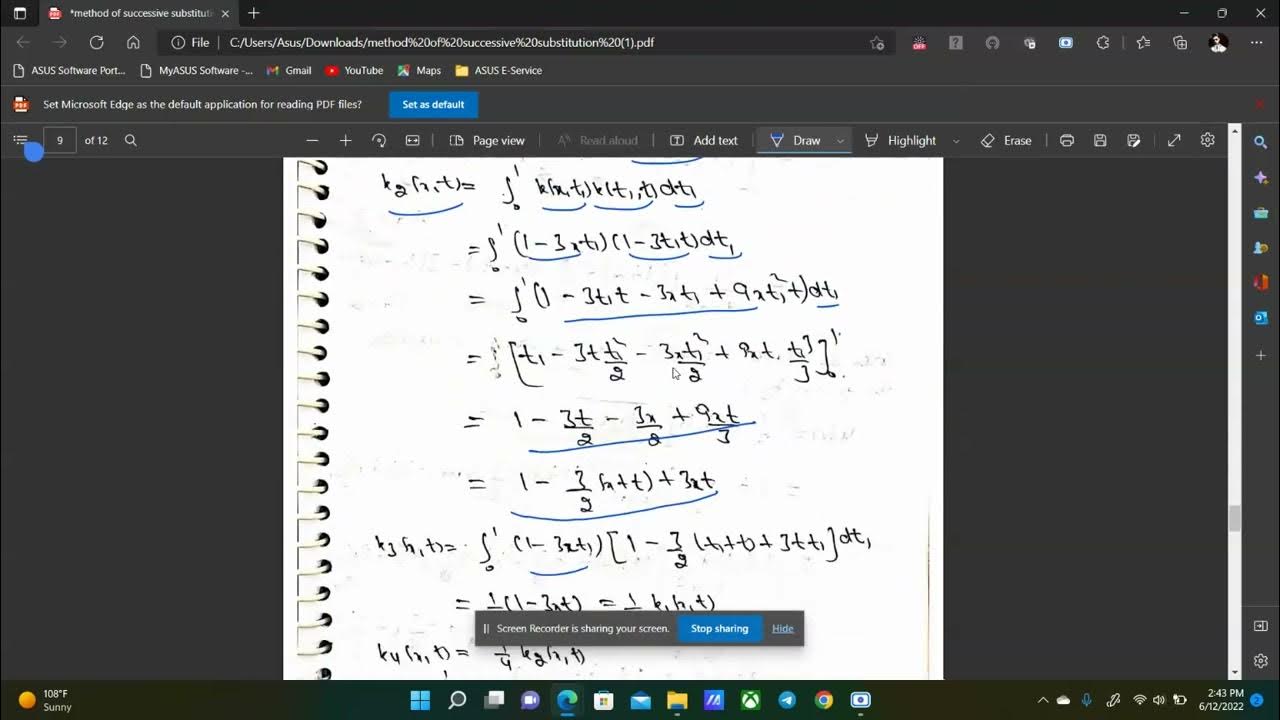 *method of successive substituti
File C:/Users/Asus/Downloads/method%20of%20successive%20substitution%20(1).pdf
ASUS Software Port... MyASUS Software -... Gmail YouTube Maps ASUS E-Service
Set Microsoft Edge as the default application for reading PDF files? Set as default
9 of 12 Page view Read aloud Add text Draw Highlight Erase
k₂(x,t) = ∫₀¹ k(x,t₁) k(t₁,t) dt₁
= ∫₀¹ (1 - 3xt₁) (1 - 3t₁t) dt₁
= ∫₀¹ (1 - 3t₁t - 3xt₁ + 9xt₁²t) dt₁
= [t₁ - 3t t₁²/2 - 3xt₁²/2 + 9xt. t₁³/3]₀¹
= 1 - 3t/2 - 3x/2 + 9xt/3
= 1 - 3/2 (x+t) + 3xt
k₃(x,t) = ∫₀¹ (1 - 3xt₁) [1 - 3/2 (t₁+t) + 3tt₁] dt₁
= (1 - 3xt) = k₁(x,t)
Screen Recorder is sharing your screen. Stop sharing Hide
k₄(x,t) = 1/4 k₂(x,t)
108°F
Sunny
2:43 PM
6/12/2022